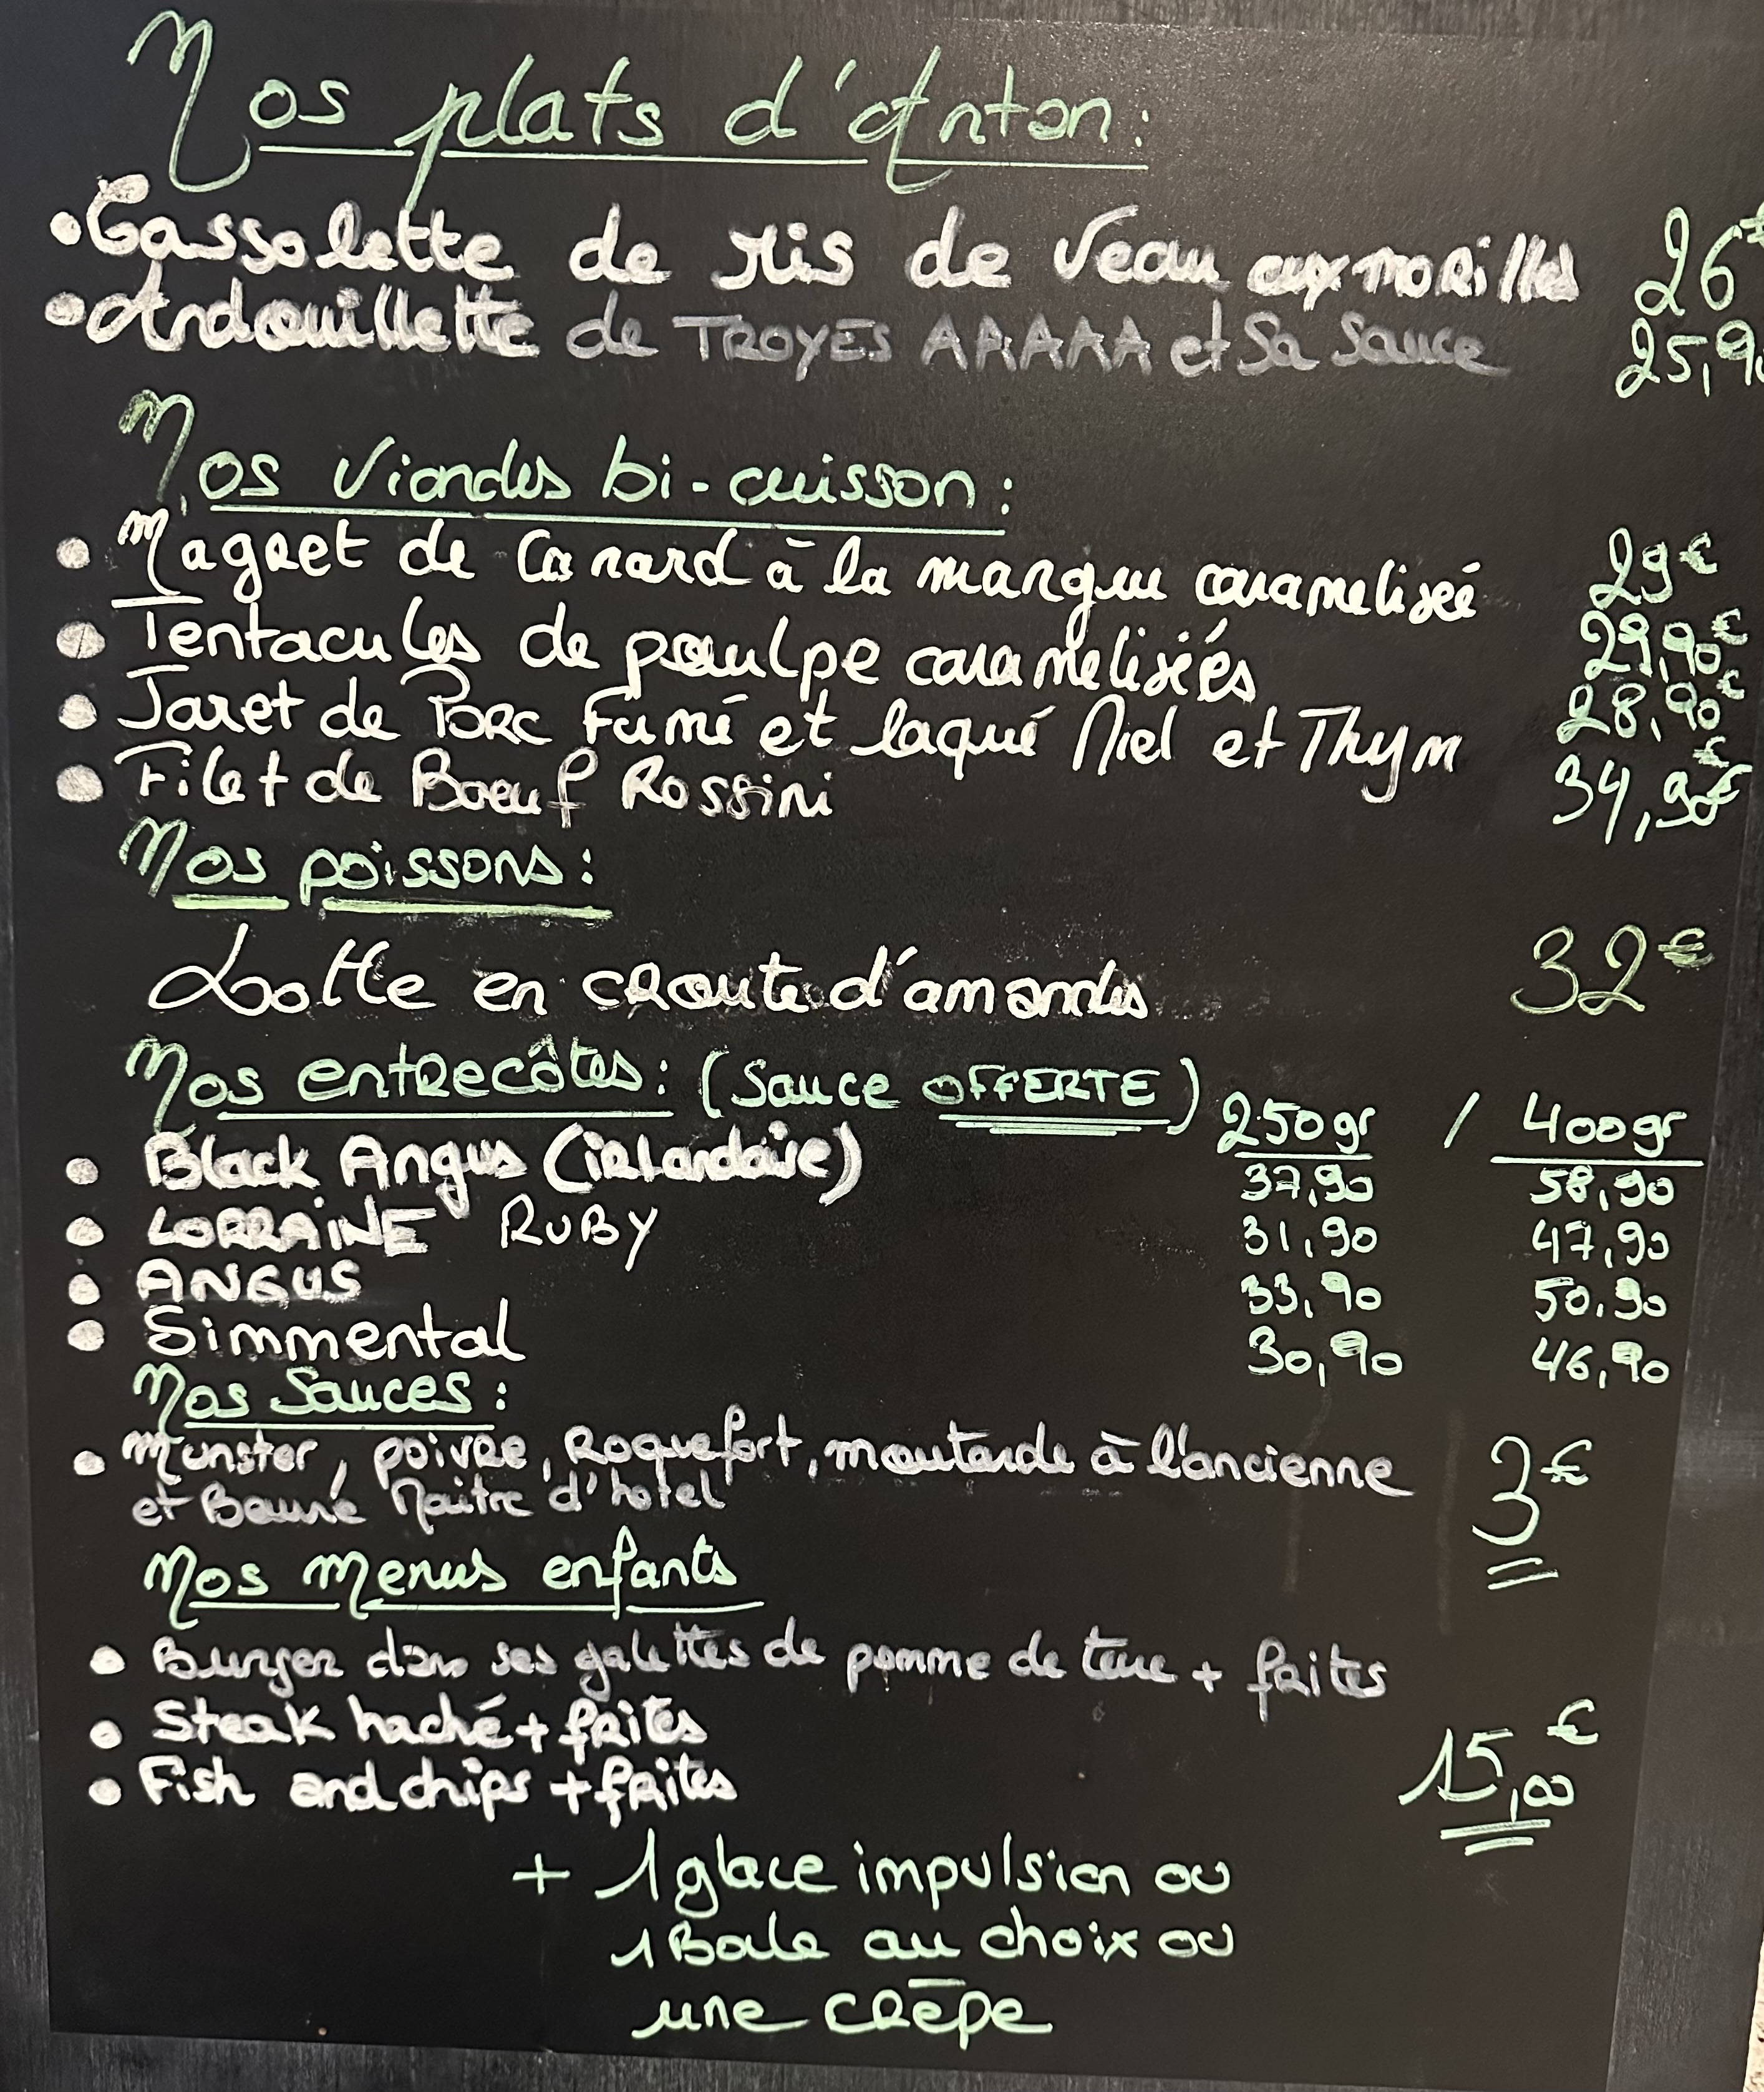 Nos plats d'Anton:
• Cassolette de Ris de Veau aux morilles 26€
• Andouillette de TROYES AAAAA et Sa Sauce 25,90
Nos Viandes bi-cuisson:
• Magret de Canard à la mangue caramelisée 29€
• Tentacules de poulpe caramelisées 29,90€
• Jaret de Porc Fumé et laqué Miel et Thym 28,90€
• Filet de Boeuf Rossini 34,90€
Nos poissons:
Lotte en croute d'amandes 32€
Nos entrecôtes: (Sauce OFFERTE) 250gr / 400gr
• Black Angus (irlandaise) 37,90 58,90
• LORRAINE RUBY 31,90 47,90
• ANGUS 33,90 50,90
• Simmental 30,90 46,90
Nos Sauces:
• Munster, poivre, Roquefort, moutarde à l'ancienne 3€
et Beurre Maitre d'hotel
Nos menus enfants
• Burger dans ses galettes de pomme de terre + frites
• Steak haché + frites 15,00€
• Fish and chips + frites
+ 1 glace impulsion ou
1 Boule au choix ou
une crêpe